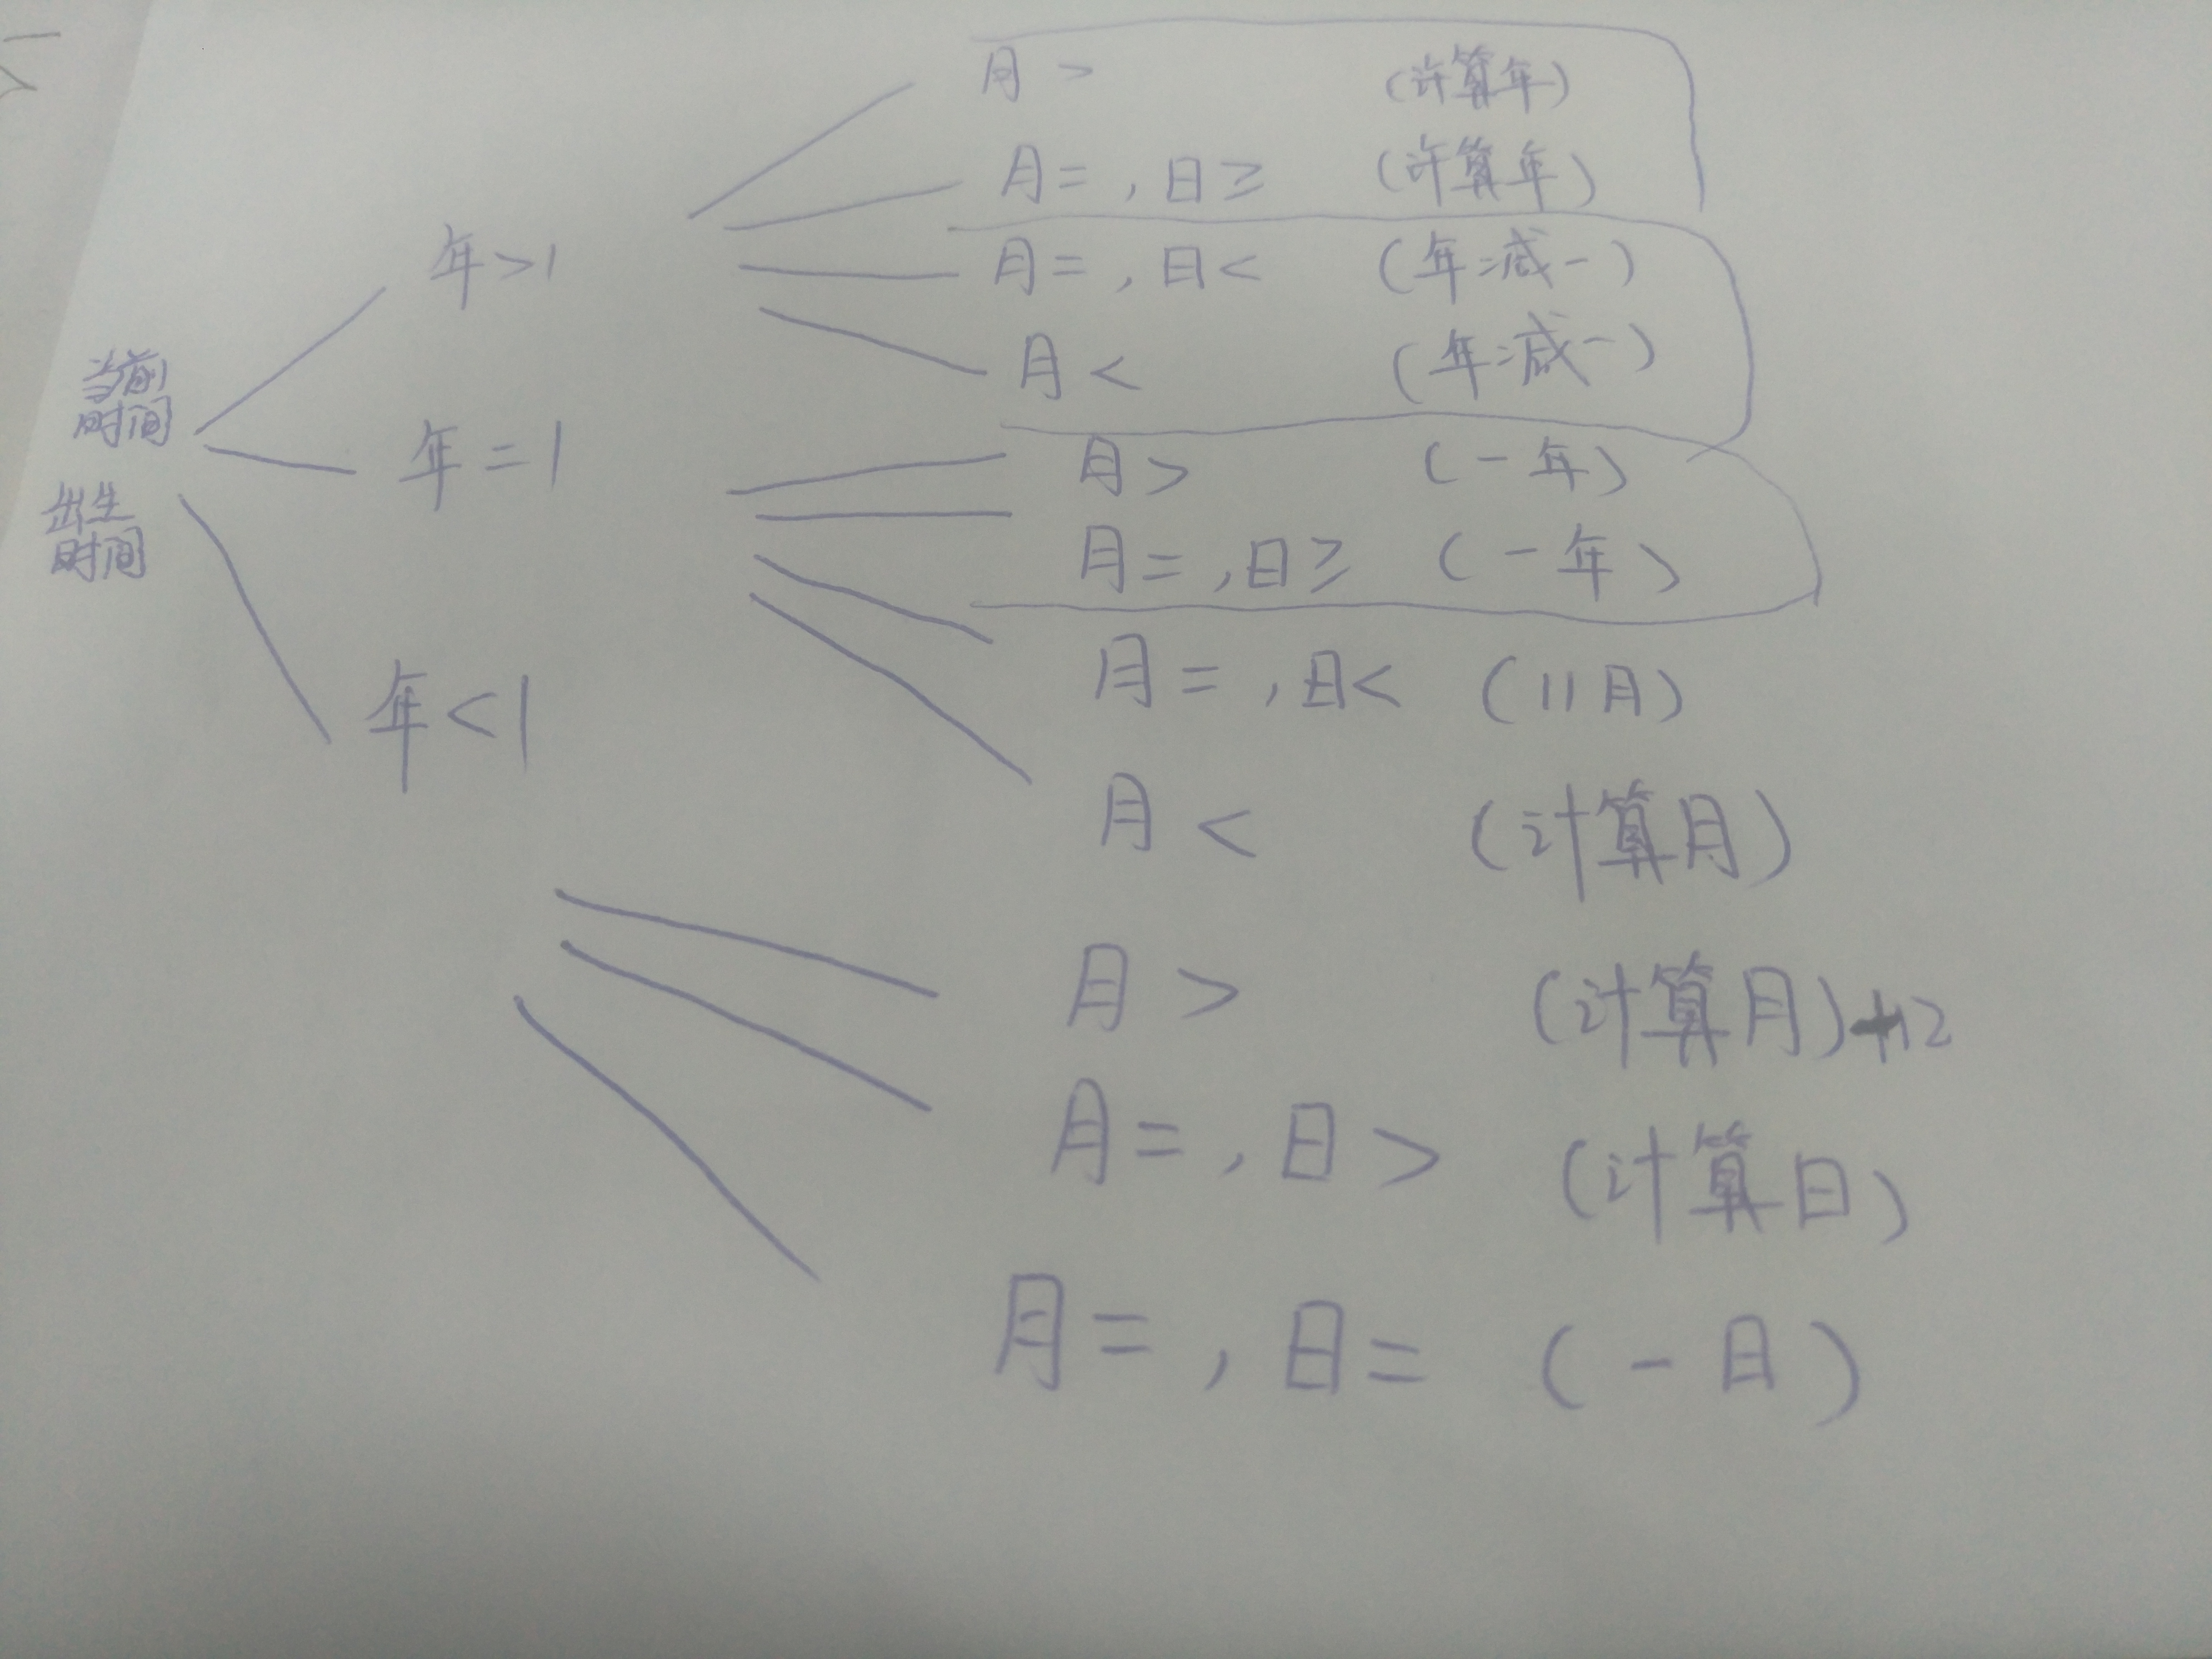 当前
时间
出生
时间
年>1
月> (计算年)
月=,日≥ (计算年)
月=,日< (年减一)
月< (年减一)
年=1
月> (一年)
月=,日≥ (一年)
月=,日< (11月)
月< (计算月)
年<1
月> (计算月)+12
月=,日> (计算日)
月=,日= (一日)